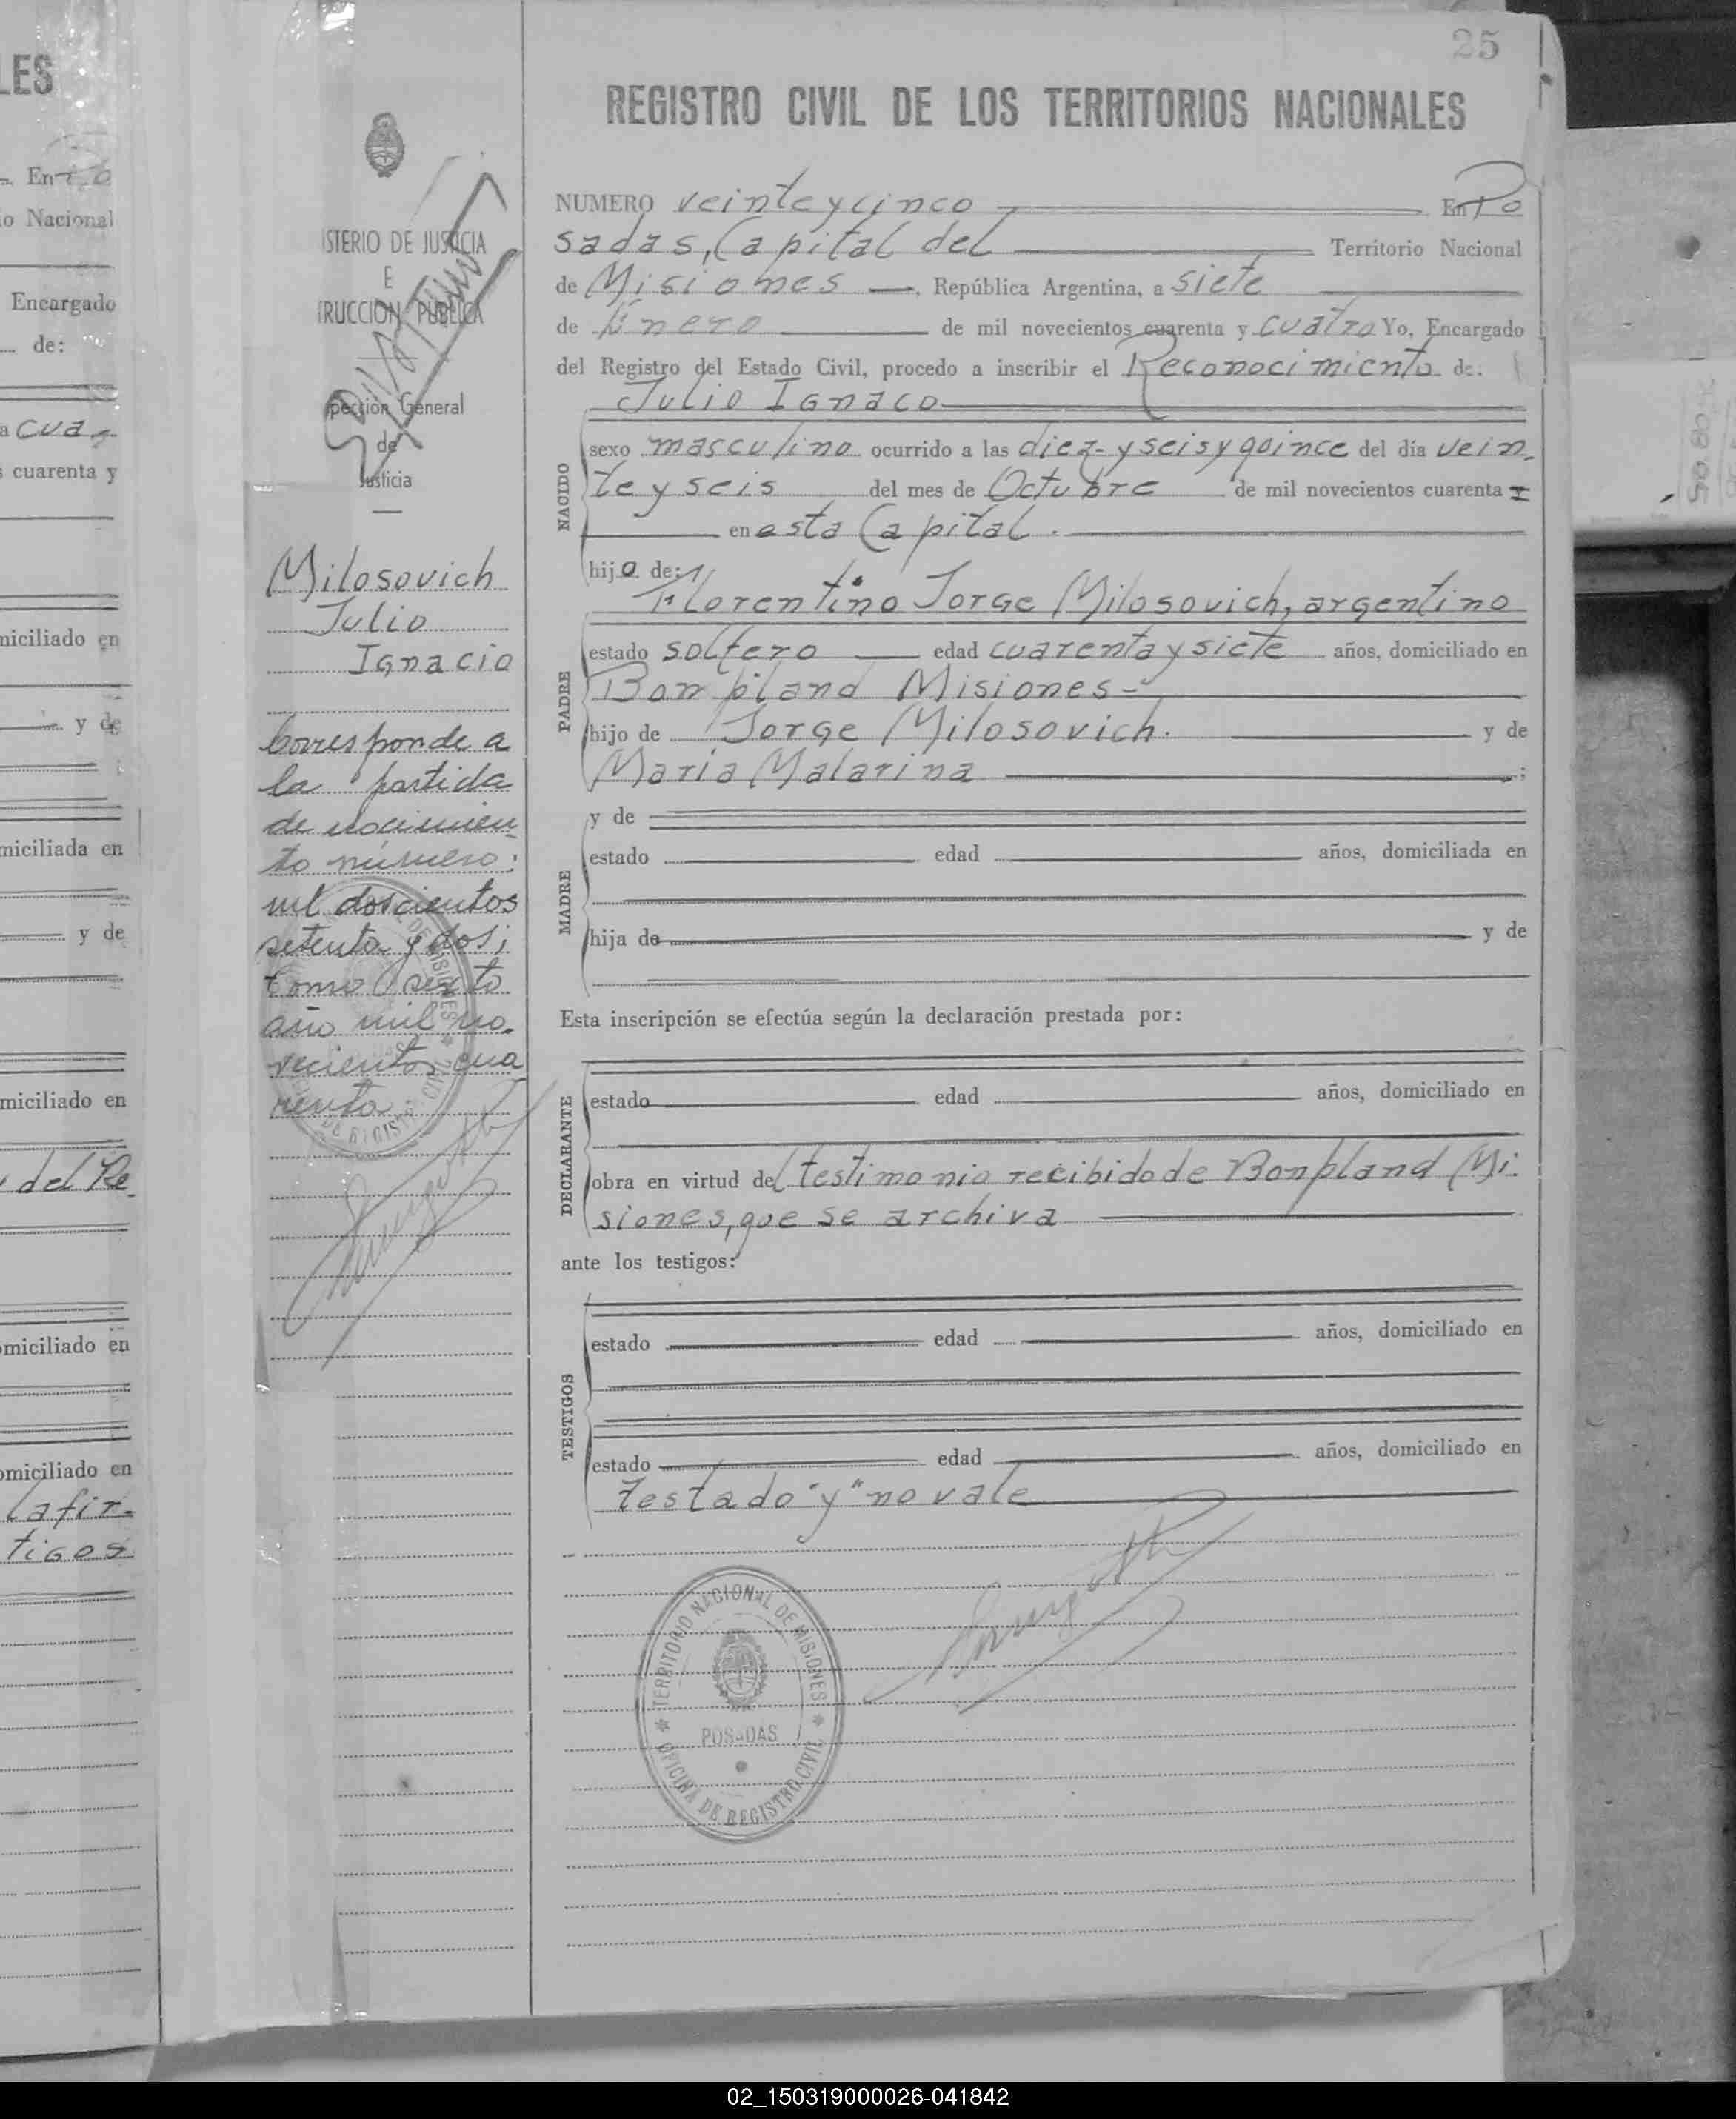 25
LES
REGISTRO CIVIL DE LOS TERRITORIOS NACIONALES
En
io Nacional
Encargado
de:
a cua-
s cuarenta y
miciliado en
y de
miciliada en
y de
miciliado en
y del Re
omiciliado en
omiciliado en
la fir-
tigos
ISTERIO DE JUSTICIA
E
TRUCCION PUBLICA
pección General
de
Justicia
Milosovich
Julio
Ignacio
Corresponde a
la partida
de nacimien-
to número:
mil doscientos
setenta y dos;
tomo sexto
año mil no-
vecientos cua
renta.
NUMERO veinte y cinco En Po
sadas, Capital del Territorio Nacional
de Misiones, República Argentina, a siete
de Enero de mil novecientos cuarenta y cuatro Yo, Encargado
del Registro del Estado Civil, procedo a inscribir el Reconocimiento de:
Julio Ignaco
NACIDO
sexo masculino ocurrido a las diez y seis y quince del día vein-
te y seis del mes de Octubre de mil novecientos cuarenta y
en esta Capital.
hijo de:
Florentino Jorge Milosovich, argentino
PADRE
estado soltero edad cuarenta y siete años, domiciliado en
Bonpland Misiones-
hijo de Jorge Milosovich. y de
Maria Malarina ;
MADRE
y de
estado edad años, domiciliada en
hija de y de
Esta inscripción se efectúa según la declaración prestada por:
DECLARANTE
estado edad años, domiciliado en
obra en virtud del testimonio recibido de Bonpland (Mi-
siones, que se archiva
ante los testigos:
TESTIGOS
estado edad años, domiciliado en
estado edad años, domiciliado en
Testado "y" no vale
TERRITORIO NACIONAL DE MISIONES
POSADAS
OFICINA DE REGISTRO CIVIL
02_150319000026-041842